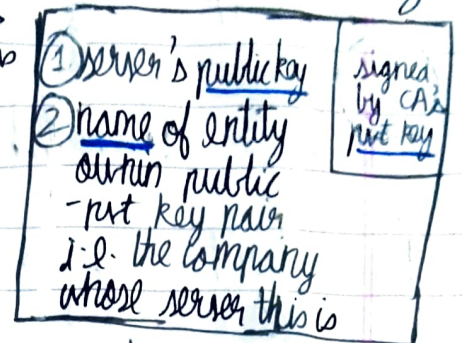 ① server's public key
② name of entity
ownin public
-pvt key pair
i.e. the company
whose server this is
signed
by CA's
pvt key